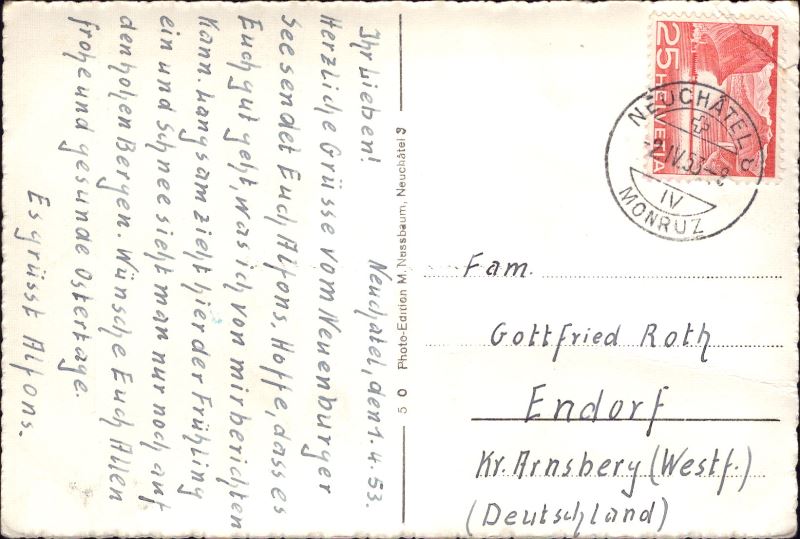 Neuchatel, den 1.4.53.
Ihr Lieben!
Herzliche Grüsse vom Neuenburger
See sendet Euch Alfons, Hoffe, dass es
Euch gut geht, was ich von mir berichten
Kann. Langsam zieht hier der Frühling
ein und Schnee sieht man nur noch auf
den hohen Bergen. Wünsche Euch Allen
frohe und gesunde Ostertage.
Es grüsst Alfons.
5 0 Photo-Edition M. Nussbaum, Neuchâtel 9
25
HELVETIA
NEUCHÂTEL 8
-2.IV.53-8
IV
MONRUZ
Fam.
Gottfried Roth
Endorf
Kr. Arnsberg (Westf.)
(Deutschland)